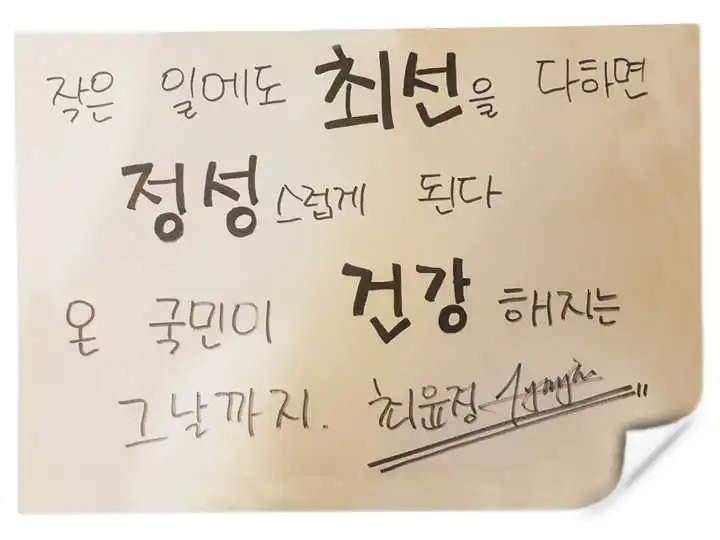 작은 일에도 최선을 다하면
정성스럽게 된다
온 국민이 건강해지는
그날까지. 최윤정